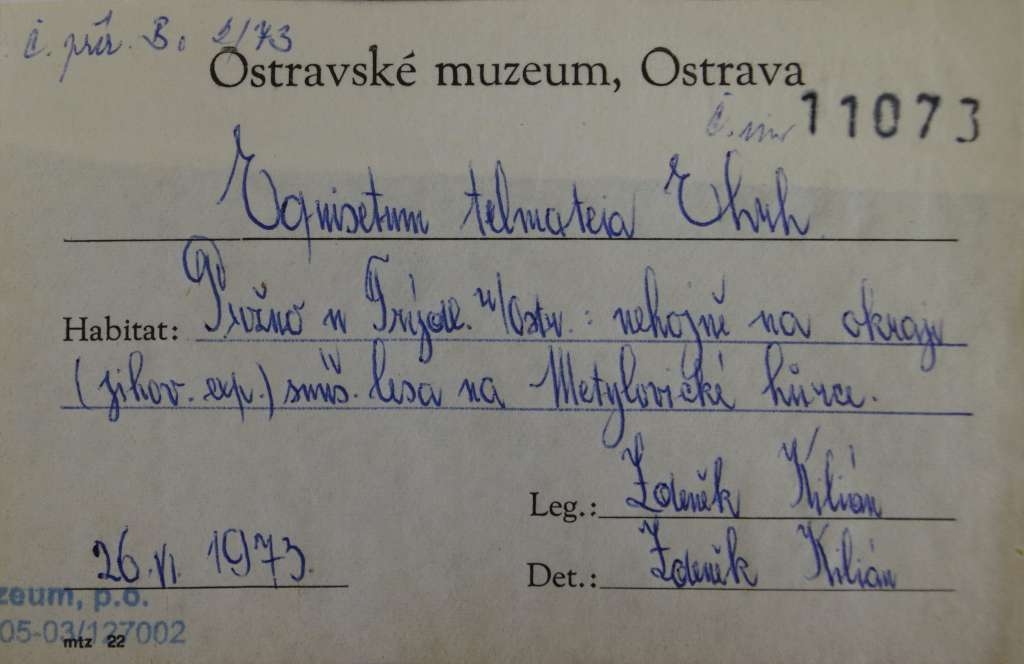 č. přír. B. 2/73
Ostravské muzeum, Ostrava
č. inv. 11073
Equisetum telmateia Ehrh
Habitat: Pržno u Frýdl. n/Ostr.: nehojně na okraji
(jihov. exp.) smíš. lesa na Metylovické hůrce.
Leg.: Zdeněk Kilián
26. VI. 1973.
Det.: Zdeněk Kilián
zeum, p.o.
05-03/127002
mtz 22